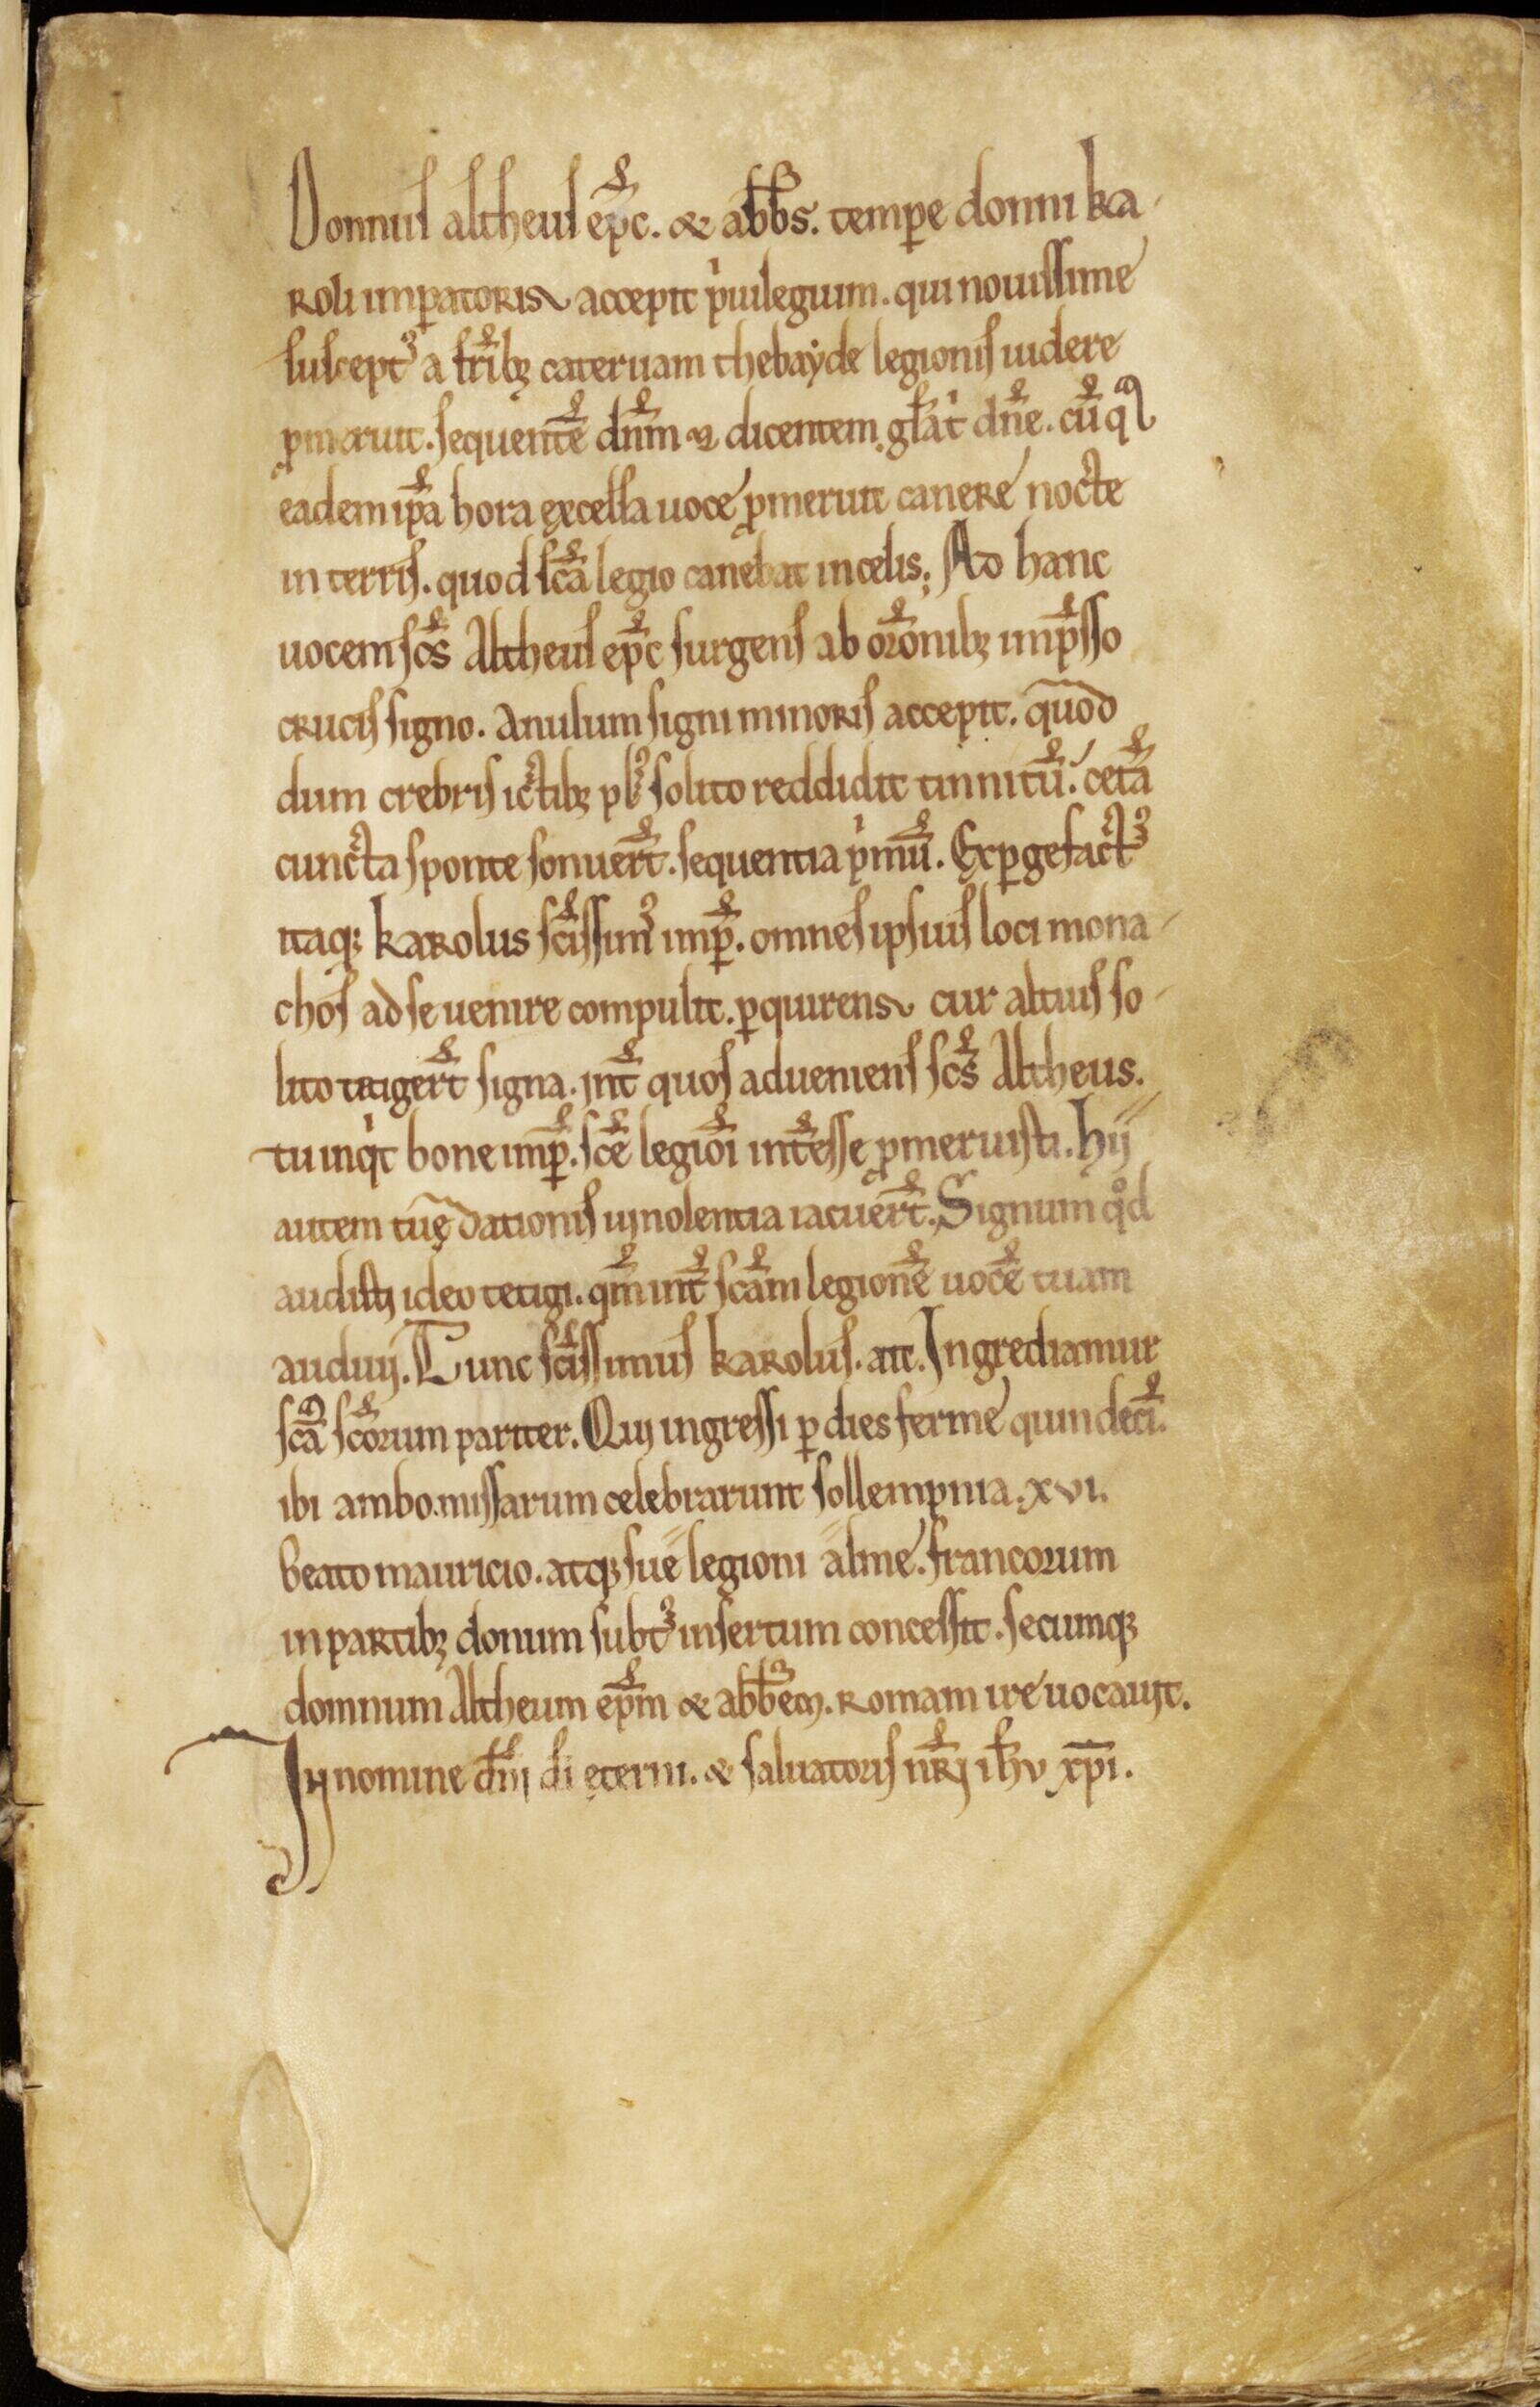 Donnus altheus ep̄c. & abb̄s. temꝑe donni ka-
roli imꝑatoris accepit pͥuilegium. qui nouissime
suscept᷒ a fr̄ibꝫ cateruam thebayde legionis uidere
ꝓmeruit. sequentē dn̄m & dicentem. gl̄at dn̄e. cū
eadem ip̄a hora excelsa uoce ꝓmeruit canere nocte
in terris. quod sc̄a legio canebat in celis; Ad hanc
uocem sc̄s Altheus ep̄c surgens ab or̄onibꝫ imp̄sso
crucis signo. Anulum signi minoris accepit. quod
dum crebris ictibꝫ pl᷒ solito reddidit tinnitū. cet̄a
cuncta sponte sonuer̄t. sequentia pͥmū. Exꝑgefact᷒
itaqꝫ karolus sc̄issim᷒ imꝑ. omnes ipsius loci mona-
chos ad se uenire compulit. ꝑquirens cur altius so-
lito tetiger̄t signa. int̄ quos adueniens sc̄s Altheus.
tu inqͥt bone imꝑ. sc̄e legioī int̄esse ꝓmeruisti. hij
autem tuę dationis uinolentia iacuer̄t. Signum qͦd
audisti ideo tetigi. qm̄ int̄ sc̄am legionē uocē tuam
audiui. Tunc sc̄issimus karolus. ait. Ingrediamur
sc̄a sc̄orum pariter. Qui ingressi ꝑ dies ferme quindecī.
ibi ambo. missarum celebrarunt sollempnia. xvi.
beato mauricio. atqꝫ sue legioni alme. francorum
in partibꝫ donum subt᷒ insertum concessit. secumqꝫ
domnum Altheum ep̄m & abb̄em. Romam ire uocauit.
In nomine dn̄i dī ęterni. & saluatoris nr̄i ih̄u xp̄i.